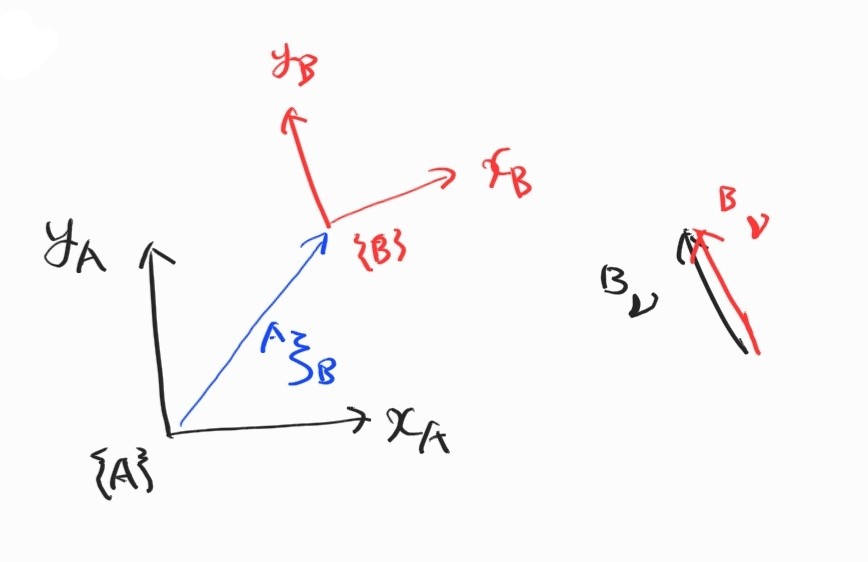 y_B
x_B
{B}
y_A
^Aξ_B
x_A
{A}
^Bν
^Bν